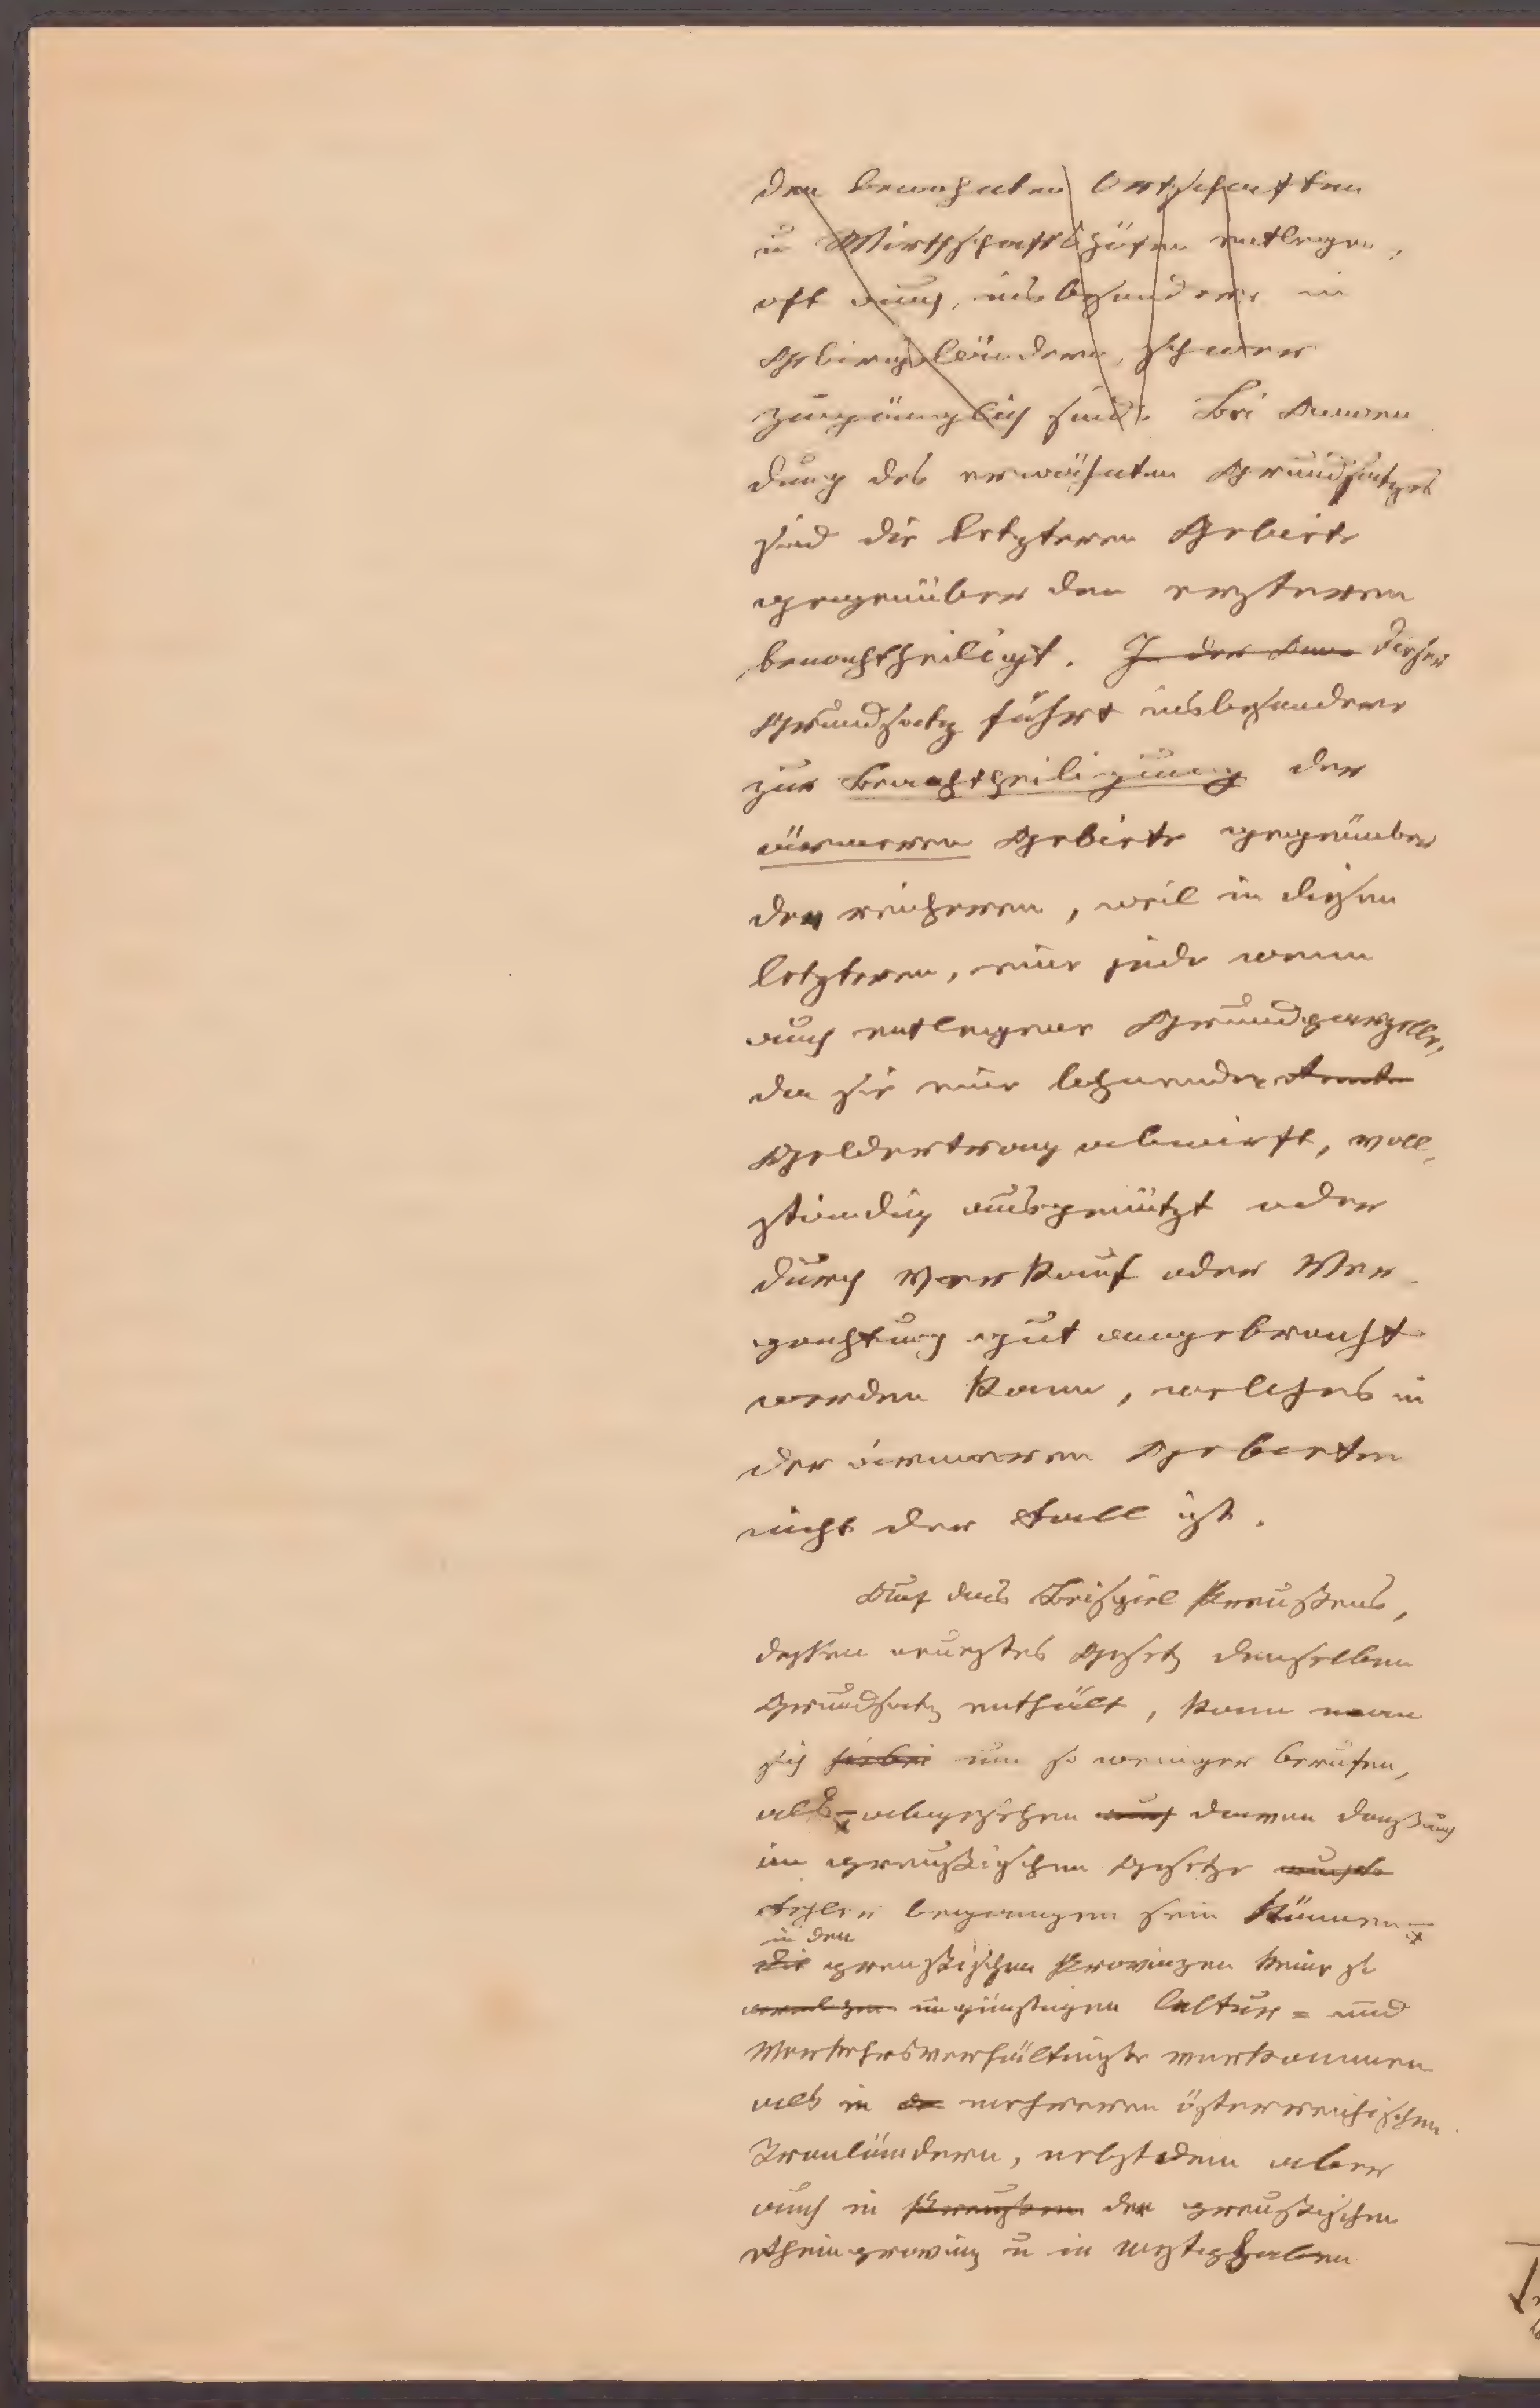 den bewohnten Ortschaften
u Wirthschaftshöfen entlegen,
oft auch, insbesondere in
Gebirgsländern, schwer
zugänglich sind. Bei Anwen
dung des erwähnten Grundsatzes
sind die letzteren Gebiete
gegenüber den ersteren
benachtheiligt. In der Anw dieser
Grundsatz führt insbesondere
zur Benachtheiligung der
ärmeren Gebiete gegenüber
den reicheren, weil in diesen
letzteren, eine jede wenn
auch entlegene Grundparzelle,
da sie eine lohnende
Geldertrag abwirft, voll-
ständig ausgenützt oder
durch Verkauf oder Ver-
pachtung gut angebracht
werden kann, welches in
der ärmeren Gebieten
nicht der Fall ist.
Auf das Beispiel Preußens,
dessen neuestes Gesetz denselben
Grundsatz enthält, kann man
sich hiebei um so weniger berufen,
als – abgesehen auch davon dass auch
im preußischen Gesetze
Fehler begangen sein können –
in den
die preußischen Provinzen keine so
ungünstigen Cultur= und
Verkehrsverhältnisse vorkommen
als in mehreren österreichischen
Kronländern, nebstdem aber
auch in Preußen der preußischen
Rheinprovinz u in Westephalen